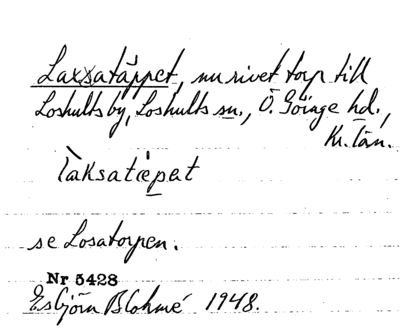 Laxsatäppet, nu rivet torp till
Loshults by, Loshults sn., Ö. Göinge hd.,
Kr. län.
se Losatorpen.
Nr 5428
Esbjörn Blohmé 1948.